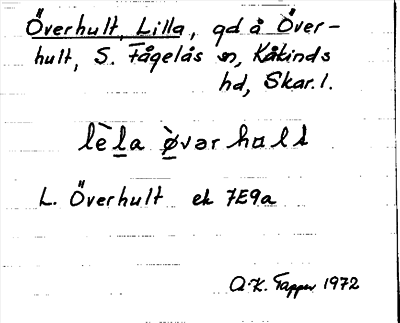 Överhult, Lilla, gd å Över-
hult, S. Fågelås sn, Kåkinds
hd, Skar. l.
lè̲la ø̲̀vərhɷlt
L. Överhult ek 7E9a
A.K. Tapper 1972